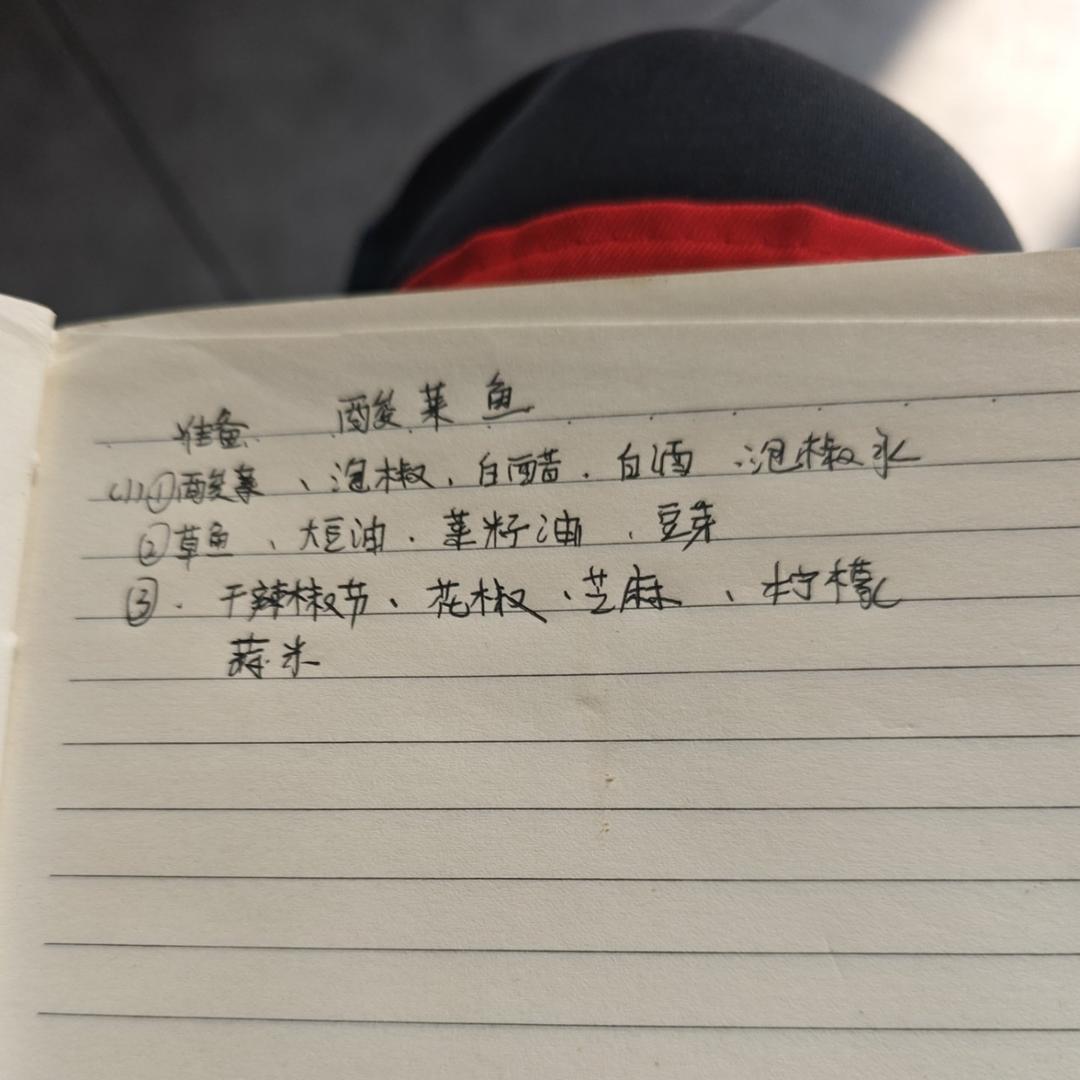 准备 酸菜鱼
(1)①酸菜、泡椒、白醋、白酒、泡椒水
②草鱼、大豆油、菜籽油、豆芽
③、干辣椒节、花椒、芝麻、柠檬
蒜米